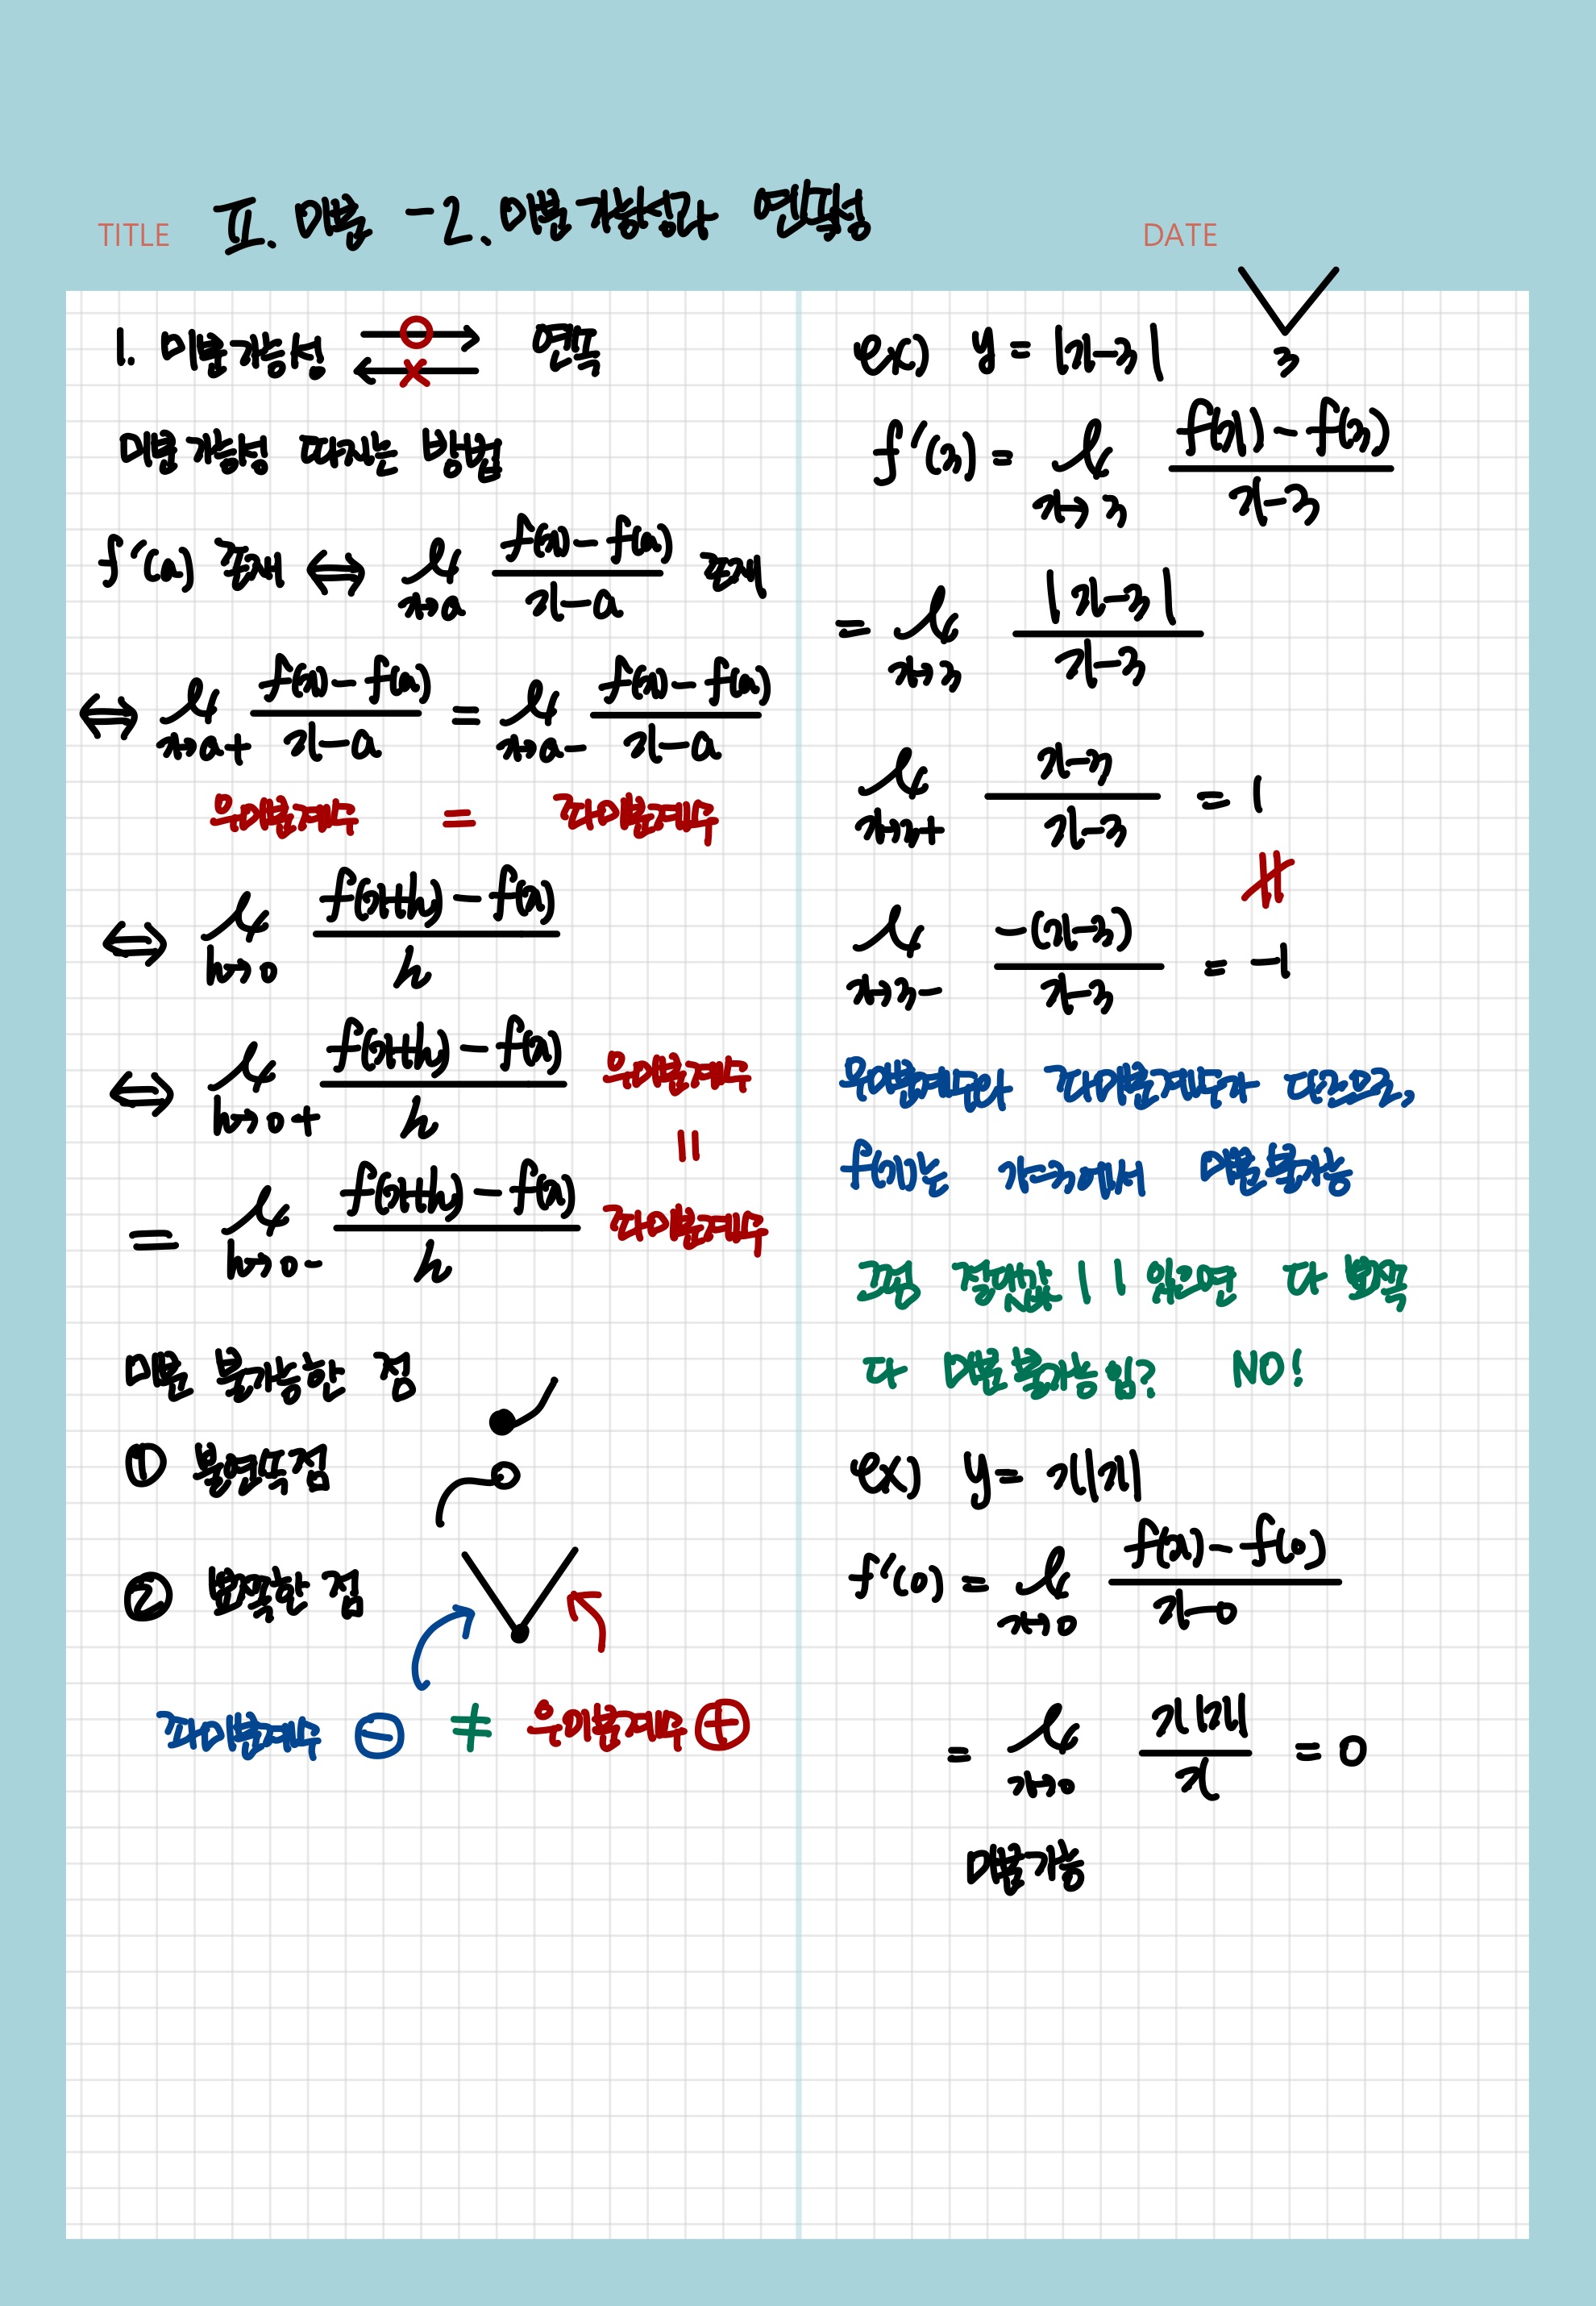 TITLE II. 미분 -2. 미분가능성과 연속성
DATE
1. 미분가능성 → ○ ← × 연속
미분가능성 따지는 방법
f'(a) 존재 ⟺ lim x→a (f(x)-f(a))/(x-a) 존재
⟺ lim x→a+ (f(x)-f(a))/(x-a) = lim x→a- (f(x)-f(a))/(x-a)
우미분계수 = 좌미분계수
⟺ lim h→0 (f(x+h)-f(x))/h
⟺ lim h→0+ (f(x+h)-f(x))/h 우미분계수
=
= lim h→0- (f(x+h)-f(x))/h 좌미분계수
미분 불가능한 점
① 불연속점
② 뾰족한 점
좌미분계수 ⊖ ≠ 우미분계수 ⊕
ex) y = |x-3|
3
f'(3) = lim x→3 (f(x)-f(3))/(x-3)
= lim x→3 |x-3|/(x-3)
lim x→3+ (x-3)/(x-3) = 1
≠
lim x→3- -(x-3)/(x-3) = -1
우미분계수와 좌미분계수가 다르므로,
f(x)는 x=3에서 미분불가능
그럼 절댓값 | | 있으면 다 뾰족
다 미분불가능임? NO!
ex) y = x|x|
f'(0) = lim x→0 (f(x)-f(0))/(x-0)
= lim x→0 x|x|/x = 0
미분가능